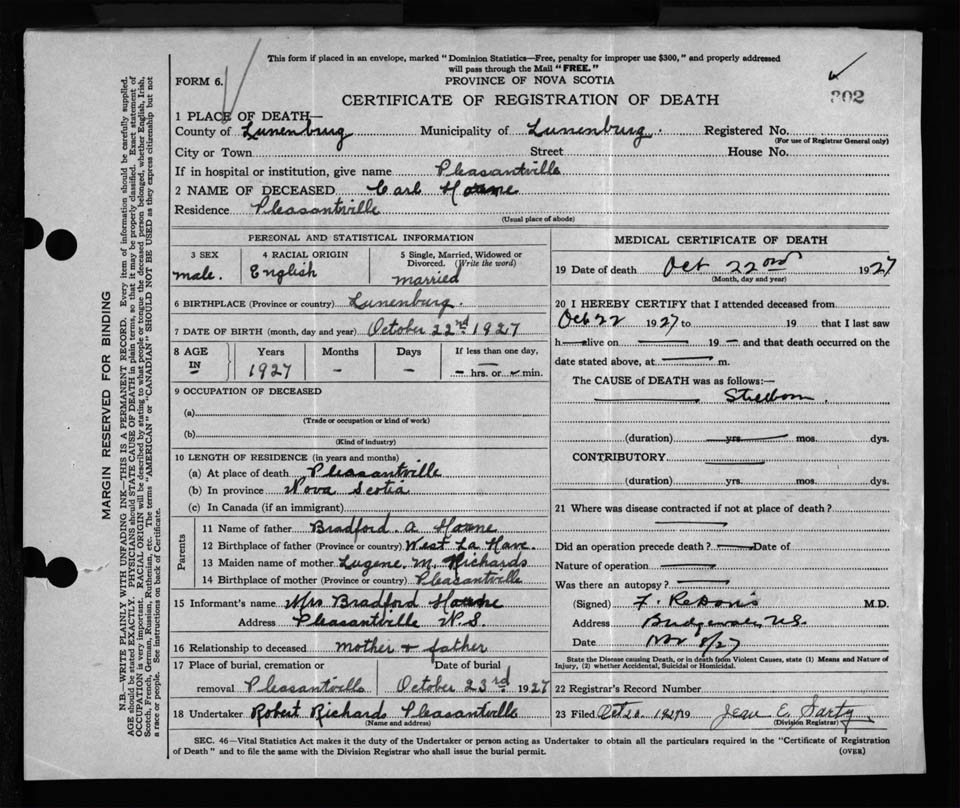 This form if placed in an envelope, marked "Dominion Statistics—Free, penalty for improper use $300," and properly addressed
will pass through the Mail "FREE."
FORM 6.
PROVINCE OF NOVA SCOTIA
302
CERTIFICATE OF REGISTRATION OF DEATH
1 PLACE OF DEATH—
County of Lunenburg Municipality of Lunenburg Registered No.
(For use of Registrar General only)
City or Town Street House No.
If in hospital or institution, give name Pleasantville
2 NAME OF DECEASED Carl
Residence Pleasantville
(Usual place of abode)
PERSONAL AND STATISTICAL INFORMATION
3 SEX 4 RACIAL ORIGIN 5 Single, Married, Widowed or Divorced. (Write the word)
male. English married
6 BIRTHPLACE (Province or country) Lunenburg.
7 DATE OF BIRTH (month, day and year) October 22nd 1927
8 AGE IN Years Months Days If less than one day,
1927 – – – hrs. or – min.
9 OCCUPATION OF DECEASED
(a)
(Trade or occupation or kind of work)
(b)
(Kind of industry)
10 LENGTH OF RESIDENCE (in years and months)
(a) At place of death Pleasantville
(b) In province Nova Scotia
(c) In Canada (if an immigrant)
Parents
11 Name of father Bradford A
12 Birthplace of father (Province or country) West La Have.
13 Maiden name of mother Eugene M. Richards
14 Birthplace of mother (Province or country) Pleasantville
15 Informant's name Mrs Bradford
Address Pleasantville N.S.
16 Relationship to deceased mother + father
17 Place of burial, cremation or removal Pleasantville Date of burial October 23rd 1927
18 Undertaker Robert Richards Pleasantville
(Name and address)
MEDICAL CERTIFICATE OF DEATH
19 Date of death Oct 22nd 1927
(Month, day and year)
20 I HEREBY CERTIFY that I attended deceased from
Oct 22 1927 to 19 that I last saw
h— alive on — 19 — and that death occurred on the
date stated above, at — m.
The CAUSE of DEATH was as follows:—
Stillborn.
(duration) yrs. mos. dys.
CONTRIBUTORY
(duration) yrs. mos. dys.
21 Where was disease contracted if not at place of death?
Did an operation precede death? Date of
Nature of operation
Was there an autopsy?
(Signed) F. M.D.
Address Bridgewater, N.S.
Date Nov 8/27
State the Disease causing Death, or in death from Violent Causes, state (1) Means and Nature of
Injury, (2) whether Accidental, Suicidal or Homicidal.
22 Registrar's Record Number
23 Filed Oct 1927 19 Jean E. Sartz
(Division Registrar)
SEC. 46—Vital Statistics Act makes it the duty of the Undertaker or person acting as Undertaker to obtain all the particulars required in the "Certificate of Registration
of Death" and to file the same with the Division Registrar who shall issue the burial permit.
(OVER)
MARGIN RESERVED FOR BINDING
N.B.—WRITE PLAINLY WITH UNFADING INK—THIS IS A PERMANENT RECORD. Every item of information should be carefully supplied.
AGE should be stated EXACTLY. PHYSICIANS should STATE CAUSE OF DEATH in plain terms, so that it may be properly classified. Exact statement of
OCCUPATION is very important. RACIAL ORIGIN will be described by stating to what people or tongue the deceased person belonged, whether English, Irish,
Scotch, French, German, Russian, Ruthenian, etc. The terms "AMERICAN" or "CANADIAN" SHOULD NOT BE USED as they express citizenship but not
a race or people. See instructions on back of Certificate.